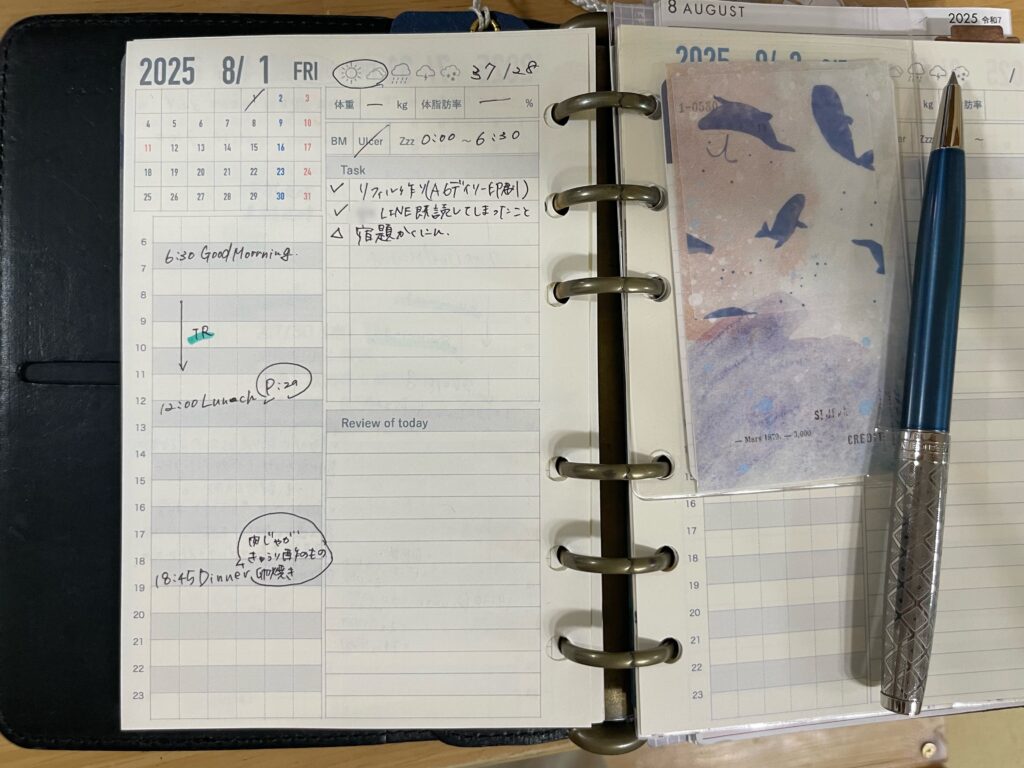 2025 8/1 FRI
37/28
体重 — kg 体脂肪率 — %
BM Ulcer Zzz 0:00 ~ 6:30
1 2 3
4 5 6 7 8 9 10
11 12 13 14 15 16 17
18 19 20 21 22 23 24
25 26 27 28 29 30 31
Task
リフィル作り(A6デイリー印刷)
LINE既読してしまったこと
宿題かくにん
6
6:30 Good Moorning.
7
8
9
TR
10
11
12:00 Lunach
12
13
14
15
16
17
18
肉じゃが
18:45 Dinner
19
20
21
22
23
Review of today
8 AUGUST
2025 令和7
2025
1-0580
kg
率
Zzz ~
— Mars 1979. — 3,000
16
17
18
19
20
21
22
23